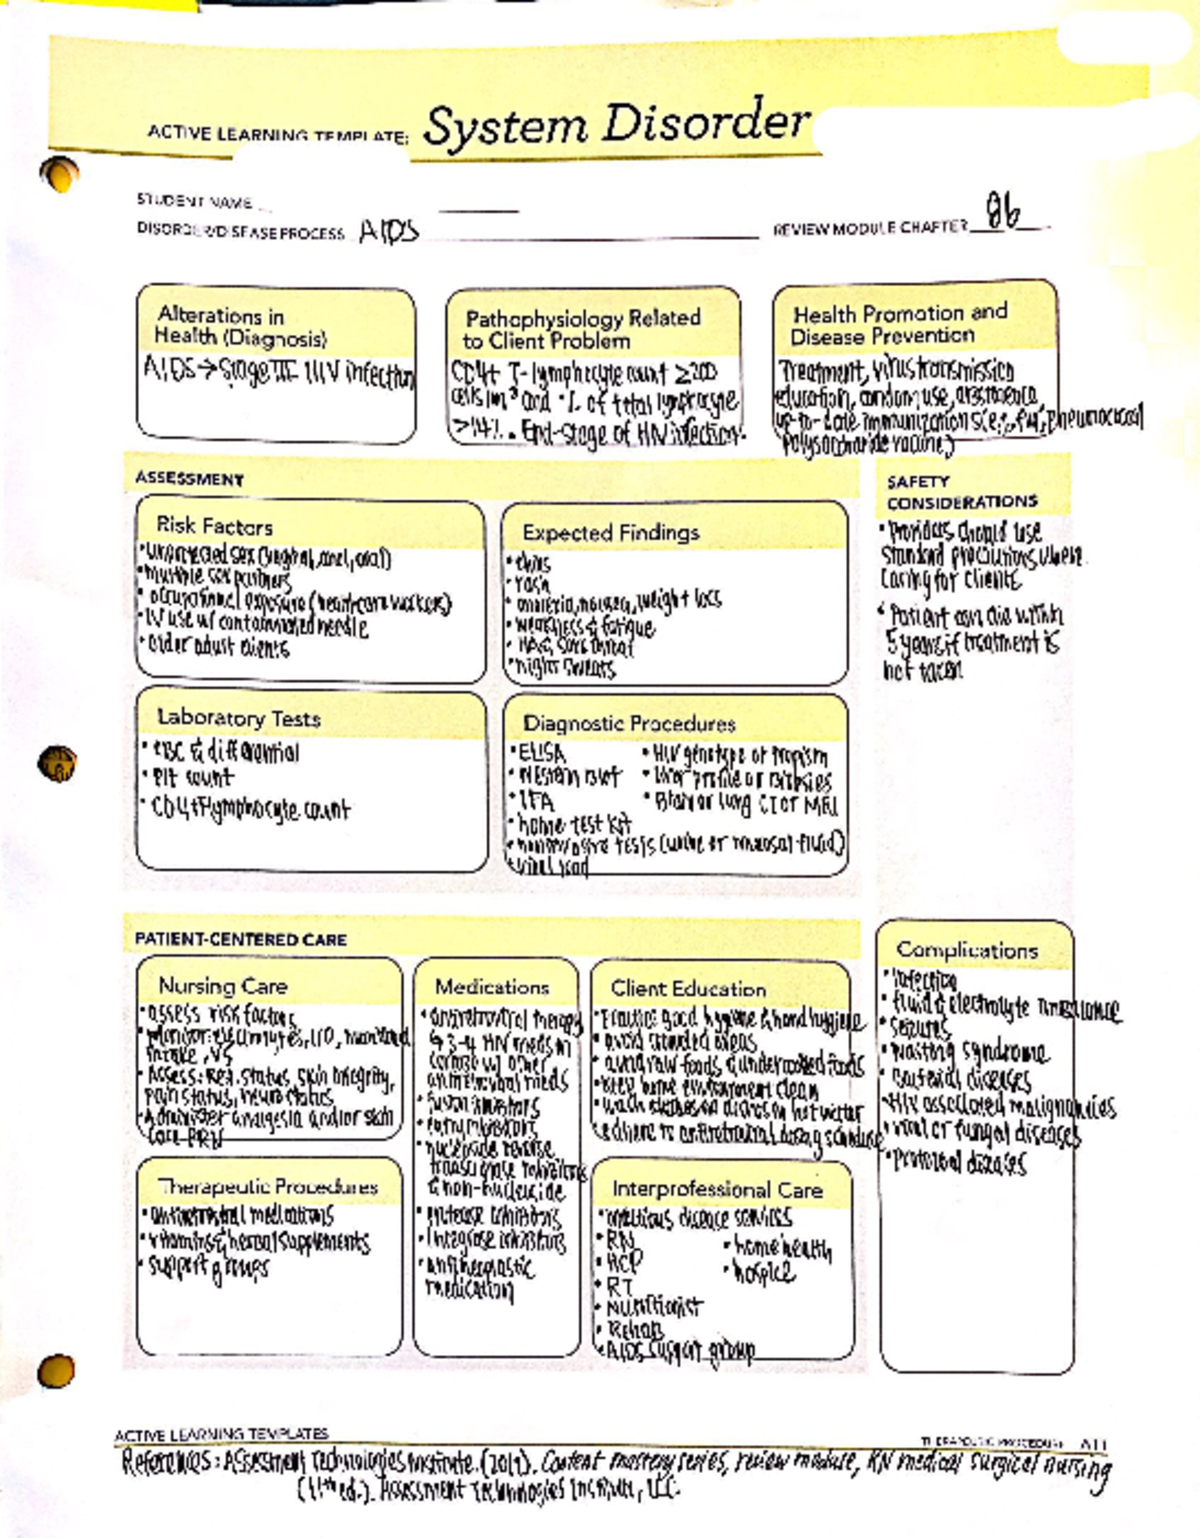 ACTIVE LEARNING TEMPLATE: System Disorder
STUDENT NAME
DISORDER/DISEASE PROCESS AIDS
REVIEW MODULE CHAPTER 86
Alterations in
Health (Diagnosis)
AIDS → Stage III HIV infection
Pathophysiology Related
to Client Problem
CD4+ T-lymphocyte count ≥200
cells/m³ and % of total lymphocyte
>14%. End-stage of HIV infection.
Health Promotion and
Disease Prevention
Treatment, virus transmission
education, condom use, abstinence,
up-to-date immunizations (e.g., flu, pneumococcal
polysaccharide vaccine)
ASSESSMENT
SAFETY
CONSIDERATIONS
Risk Factors
• unprotected sex (vaginal, anal, oral)
• multiple sex partners
• occupational exposure (healthcare workers)
• IV use w/ contaminated needle
• older adult clients
Expected Findings
• chills
• rash
• anorexia, nausea, weight loss
• weakness & fatigue
• HA & sore throat
• night sweats
• Providers should use
standard precautions when
caring for clients
• Patient can die within
5 years if treatment is
not taken
Laboratory Tests
• CBC & differential
• Plt count
• CD4+ T-lymphocyte count
Diagnostic Procedures
• ELISA
• Western blot
• IFA
• home test kit
• noninvasive tests (urine or mucosal fluid)
• viral load
• HIV genotype or tropism
• liver profile or biopsies
• Brain or lung CT or MRI
PATIENT-CENTERED CARE
Nursing Care
• assess risk factors
• Monitor: electrolytes, I/O, nutritional
intake, VS
• Assess: Resp. status, skin integrity,
pain status, neuro status
• Administer analgesia and/or skin
care PRN
Medications
• antiretroviral therapy
↳ 3-4 HIV meds in
combo w/ other
antiretroviral meds
• fusion inhibitors
• entry inhibitors
• nucleoside reverse
transcriptase inhibitors
& non-nucleoside
• protease inhibitors
• Integrase inhibitors
• antineoplastic
medication
Client Education
• Practice good hygiene & hand hygiene
• avoid crowded areas
• avoid raw foods & undercooked foods
• keep home environment clean
• wash dishes in hot water
• adhere to antiretroviral dosing schedule
Complications
• infection
• fluid & electrolyte imbalance
• seizures
• Wasting syndrome
• Bacterial diseases
• HIV associated malignancies
• viral or fungal diseases
• Protozoal diseases
Therapeutic Procedures
• antiretroviral medications
• vitamins & herbal supplements
• support groups
Interprofessional Care
• infectious disease services
• RN
• HCP
• RT
• Nutritionist
• Rehab
• AIDS support group
• home health
• hospice
ACTIVE LEARNING TEMPLATES
THERAPEUTIC PROCEDURE A11
References: Assessment Technologies Institute. (2019). Content mastery series, review module, RN medical surgical nursing
(11th ed.). Assessment Technologies Institute, LLC.